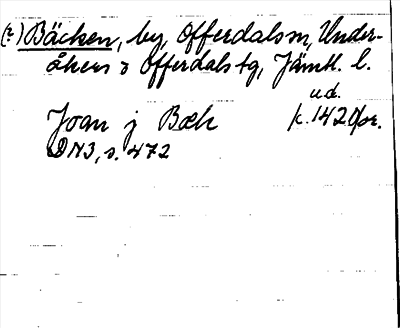 (?) Bäcken, by, Offerdals sn, Under-
åkers o Offerdals tg, Jämtl. l.
u.d.
Joan j Bæk k. 1420 or.
DN3, s. 472